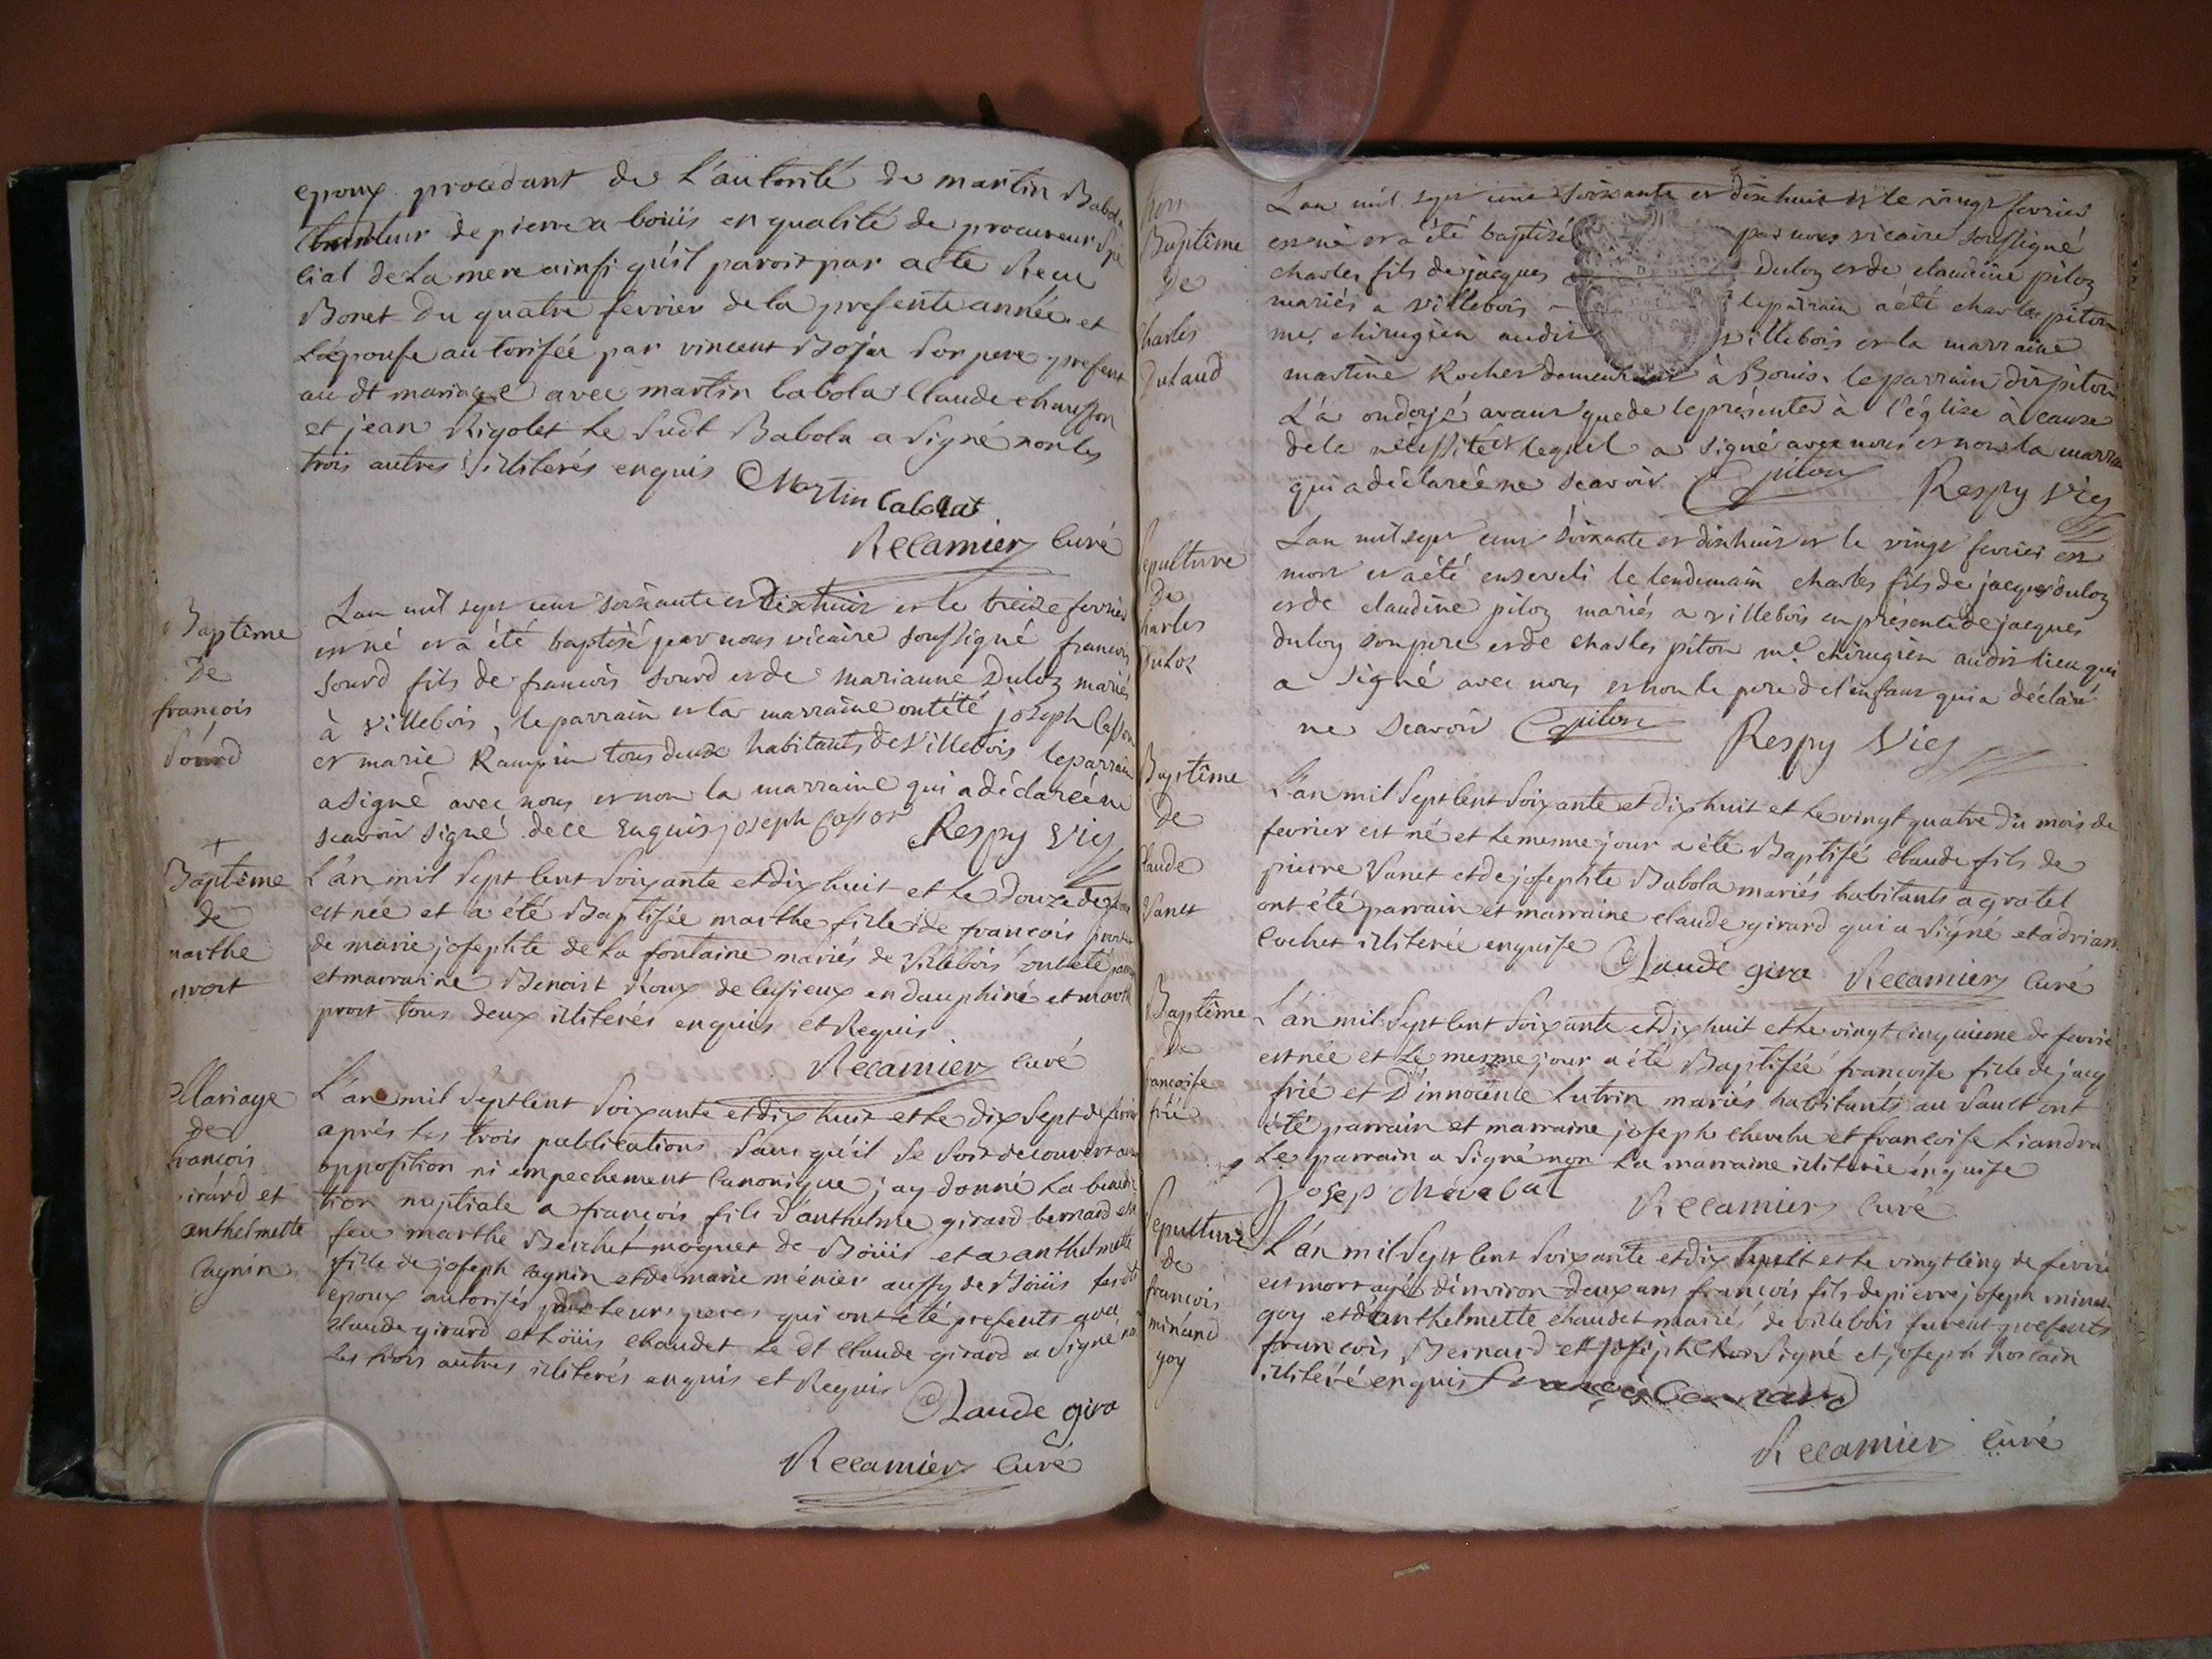 epoux procedant de L'autorité de martin Babola
de pierre a boüis en qualité de procureur Spe
cial de La mere ainsi qu'il paroit par acte Recu
Bonet Du quatre fevrier de la presente année et
L'épouse autorisée par vincent Bojea Son pere present
au dt mariage avec martin babola Claude chausson
et jean Rigolet Le Sudt Babola a Signé non les
trois autres illiterés enquis Martin babolat
Recamier Curé
Baptême
De
francois
Sourd
Lan mil sept cent soixante et Dixhuit et le treize fevrier
est né et a été baptisé par nous vicaire soussigné francois
Sourd fils de francois Sourd et de marianne Duloz mariés
à villebois, le parrain et la marraine ont été joseph Casson
et marie Rampin tous deux habitants de villebois le parrain
a signé avec nous et non la marraine qui a déclaréé ne
scavoir signé de ce Enquis joseph Casson Respy vic
Baptême
de
marthe
prost
L'an mil Sept Cent Soixante et dix huit et Le Douze de
est née et a été Baptisée marthe fille de francois prost et
de marie josephte de La fontaine mariés de villebois ont été parrain
et marraine Benoist Roux de en dauphiné et marthe
prost tous deux illiterés enquis et Requis
Recamier Curé
Mariage
de
francois
girard et
anthelmette
Cagnin
L'an mil Sept Cent Soixante et dix huit et Le dix Sept de fevrier
aprés Les trois publications Sans qu'il se soit decouvert aucune
opposition ni empechement Canonique j'ay donné La benedic
tion nuptiale a francois fils d'anthelme girard bernard et de
feue marthe Berchet moquet de Boüis et a anthelmette
fille de joseph Cagnin et de marie ménier aussy de Boüis Les dts
epoux autorisés par Leurs peres qui ont été presents avec
Claude girard et Loüis Chaudet Le dt Claude girard a Signé non
Les trois autres illiterés enquis et Requis
Claude gira
Recamier Curé
Baptême
De
Charles
Dulaud
Lan mil sept cent soixante et dixhuit et le vingt fevrier
est né et a été baptisé par nous vicaire soussigné
charles fils de jacques Duloz et de claudine piloz
mariés a villebois le parrain a été charles piton
me chirugien audit villebois et la marraine
martine Rocher demeurant à Bouis. le parrain dit piton
L'a ondoyé avant que de le présenter à l'église à cause
de la nécessité et lequel a signé avec nous et non la marraine
qui a déclareé ne scavoir C piton Respy vic
Sepulture
De
Charles
Duloz
Lan mil sept cent soixante et dixhuit et le vingt fevrier est
mort et a été enseveli le lendemain charles fils de jacques Duloz
et de claudine piloz mariés a villebois en présente de jacques
duloz son pere et de charles piton me chirugien audit lieu qui
a signé avec nous et non le pere de l'enfant qui a déclaré
ne scavoir C piton Respy vic
Baptême
De
Claude
Vanet
L'an mil Sept Cent Soixante et dix huit et Le vingt quatre du mois de
fevrier est né et Le mesme jour a été Baptisé Claude fils de
pierre Vanet et de josephte Babola mariés habitants a gratel
ont été parrain et marraine claude girard qui a Signé et adriane
Cochet illiterée enquise Claude gira Recamier Curé
Baptême
De
francoise
frié
L'an mil Sept Cent Soixante et dix huit et Le vingt cinquieme de fevrier
est née et Le mesme jour a été Baptisée francoise fille de jacq
frié et D'innocente Lutrin mariés habitants au Sault ont
été parrain et marraine joseph chevelu et francoise Liandra
Le parrain a Signé non La marraine illiterée enquise
Josep
Recamier Curé
Sepulture
de
francois
minand
goy
L'an mil Sept Cent Soixante et dix huit et Le vingt Cinq de fevrier
est mort agé d'environ deux ans francois fils de pierre joseph minand
goy et danthelmette chaudet mariés de villebois furent presents
francois Bernard et Signé et joseph
illitéré enquis francois bernard
Recamier Curé